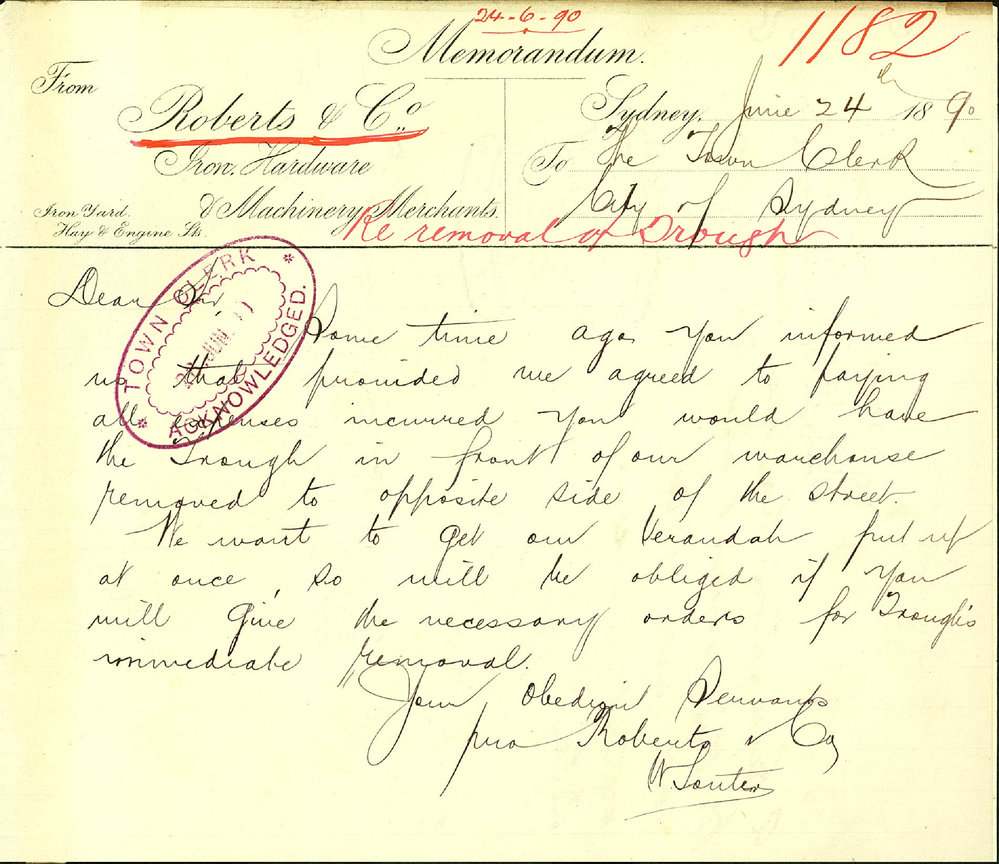 24-6-90
1182
Memorandum.
From
Roberts & Co.
Iron, Hardware
& Machinery Merchants.
Iron Yard.
Hay & Engine Sts.
Sydney, June 24th 1890
To The Town Clerk
City of Sydney
Re removal of Trough
TOWN CLERK
JUN.
ACKNOWLEDGED.
Dear Sir
Some time ago you informed
us that provided we agreed to paying
all expenses incurred you would have
the Trough in front of our warehouse
removed to opposite side of the street.
We want to get our Verandah put up
at once, so will be obliged if you
will give the necessary orders for Trough's
immediate removal.
Your Obedient Servants
pro Roberts & Co
W Souter